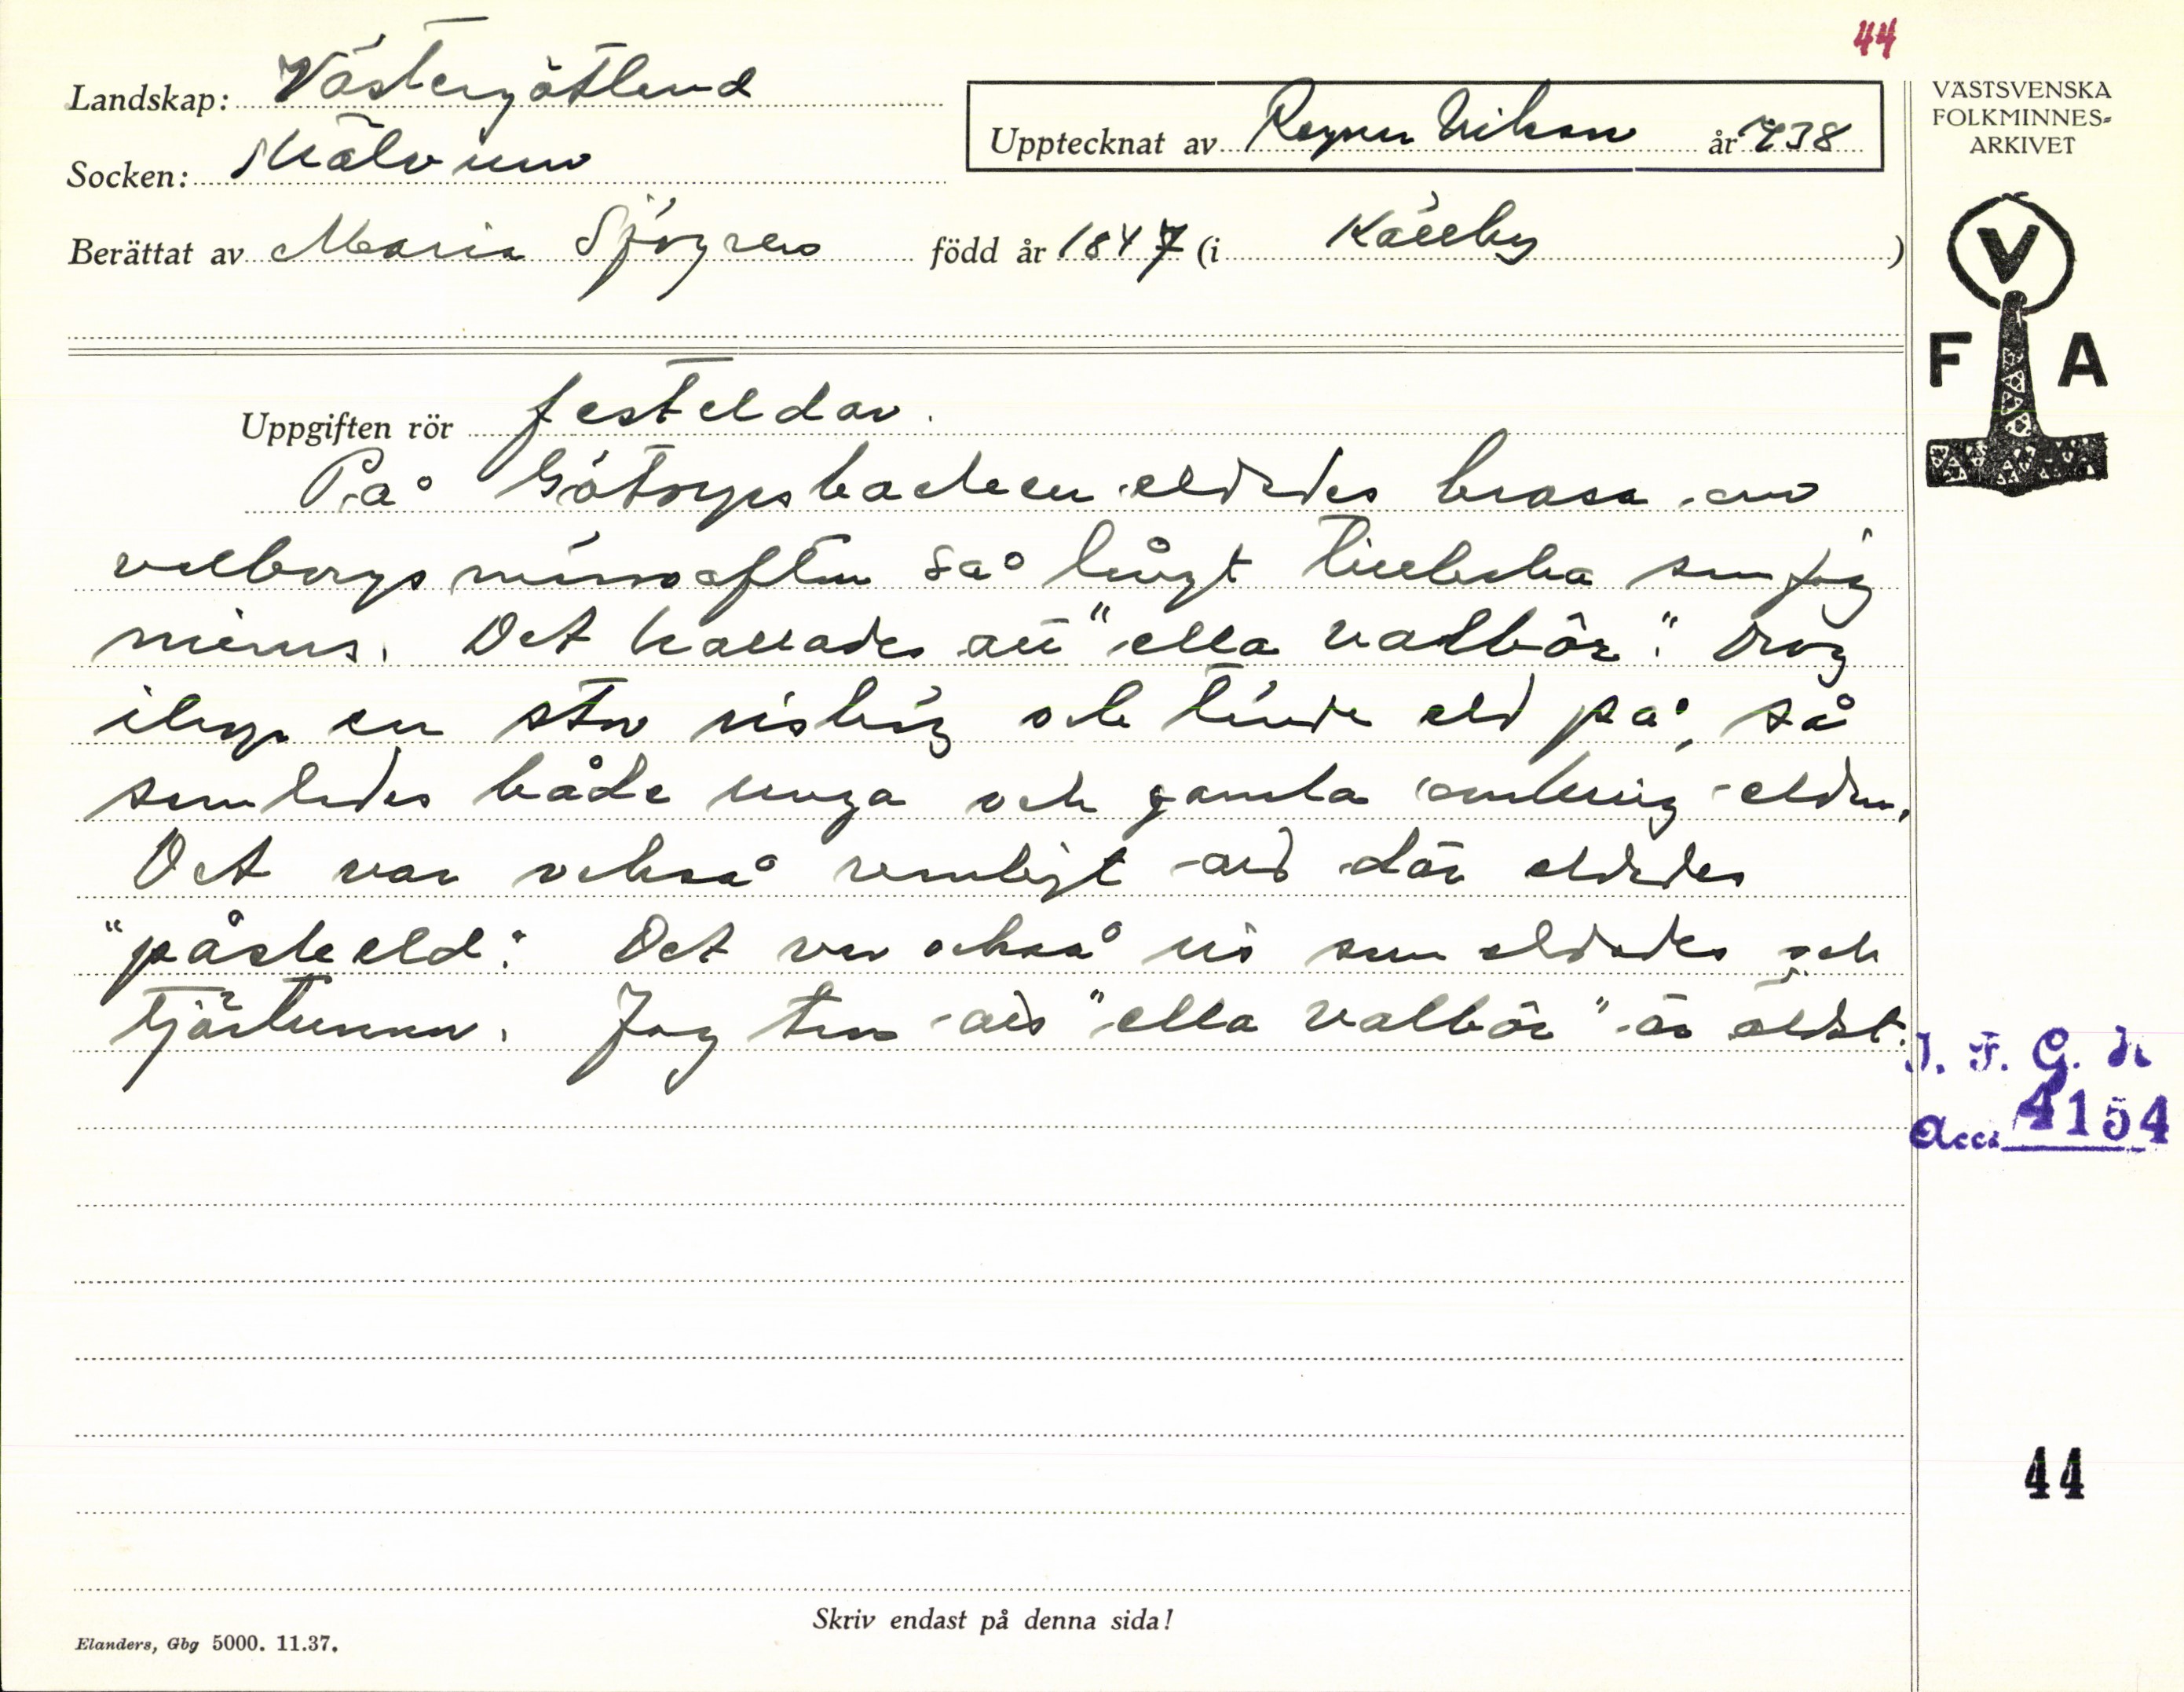 44
Landskap: Västergötland
Socken: Skälvum
Upptecknat av Ragnar Nilsson år 1938
Berättat av Maria Sjögren född år 1847 (i Källby)
VÄSTSVENSKA
FOLKMINNES-
ARKIVET
V
F A
Uppgiften rör festeldar.
På Götorpsbacken eldades brasa om
valborgsmässoafton så långt tillbaka som jag
minns. Det kallades att "ella valbôr". Drog
ihop en stor rishög och tände eld på, så
samlades både unga och gamla omkring elden.
Det var också vanligt att där eldades
"påskeld". Det var också ris som eldades och
tjärtunnor. Jag tror att "ella valbôr" är äldst.
I. F. G. h
Acc. 4154
44
Skriv endast på denna sida!
Elanders, Gbg 5000. 11.37.